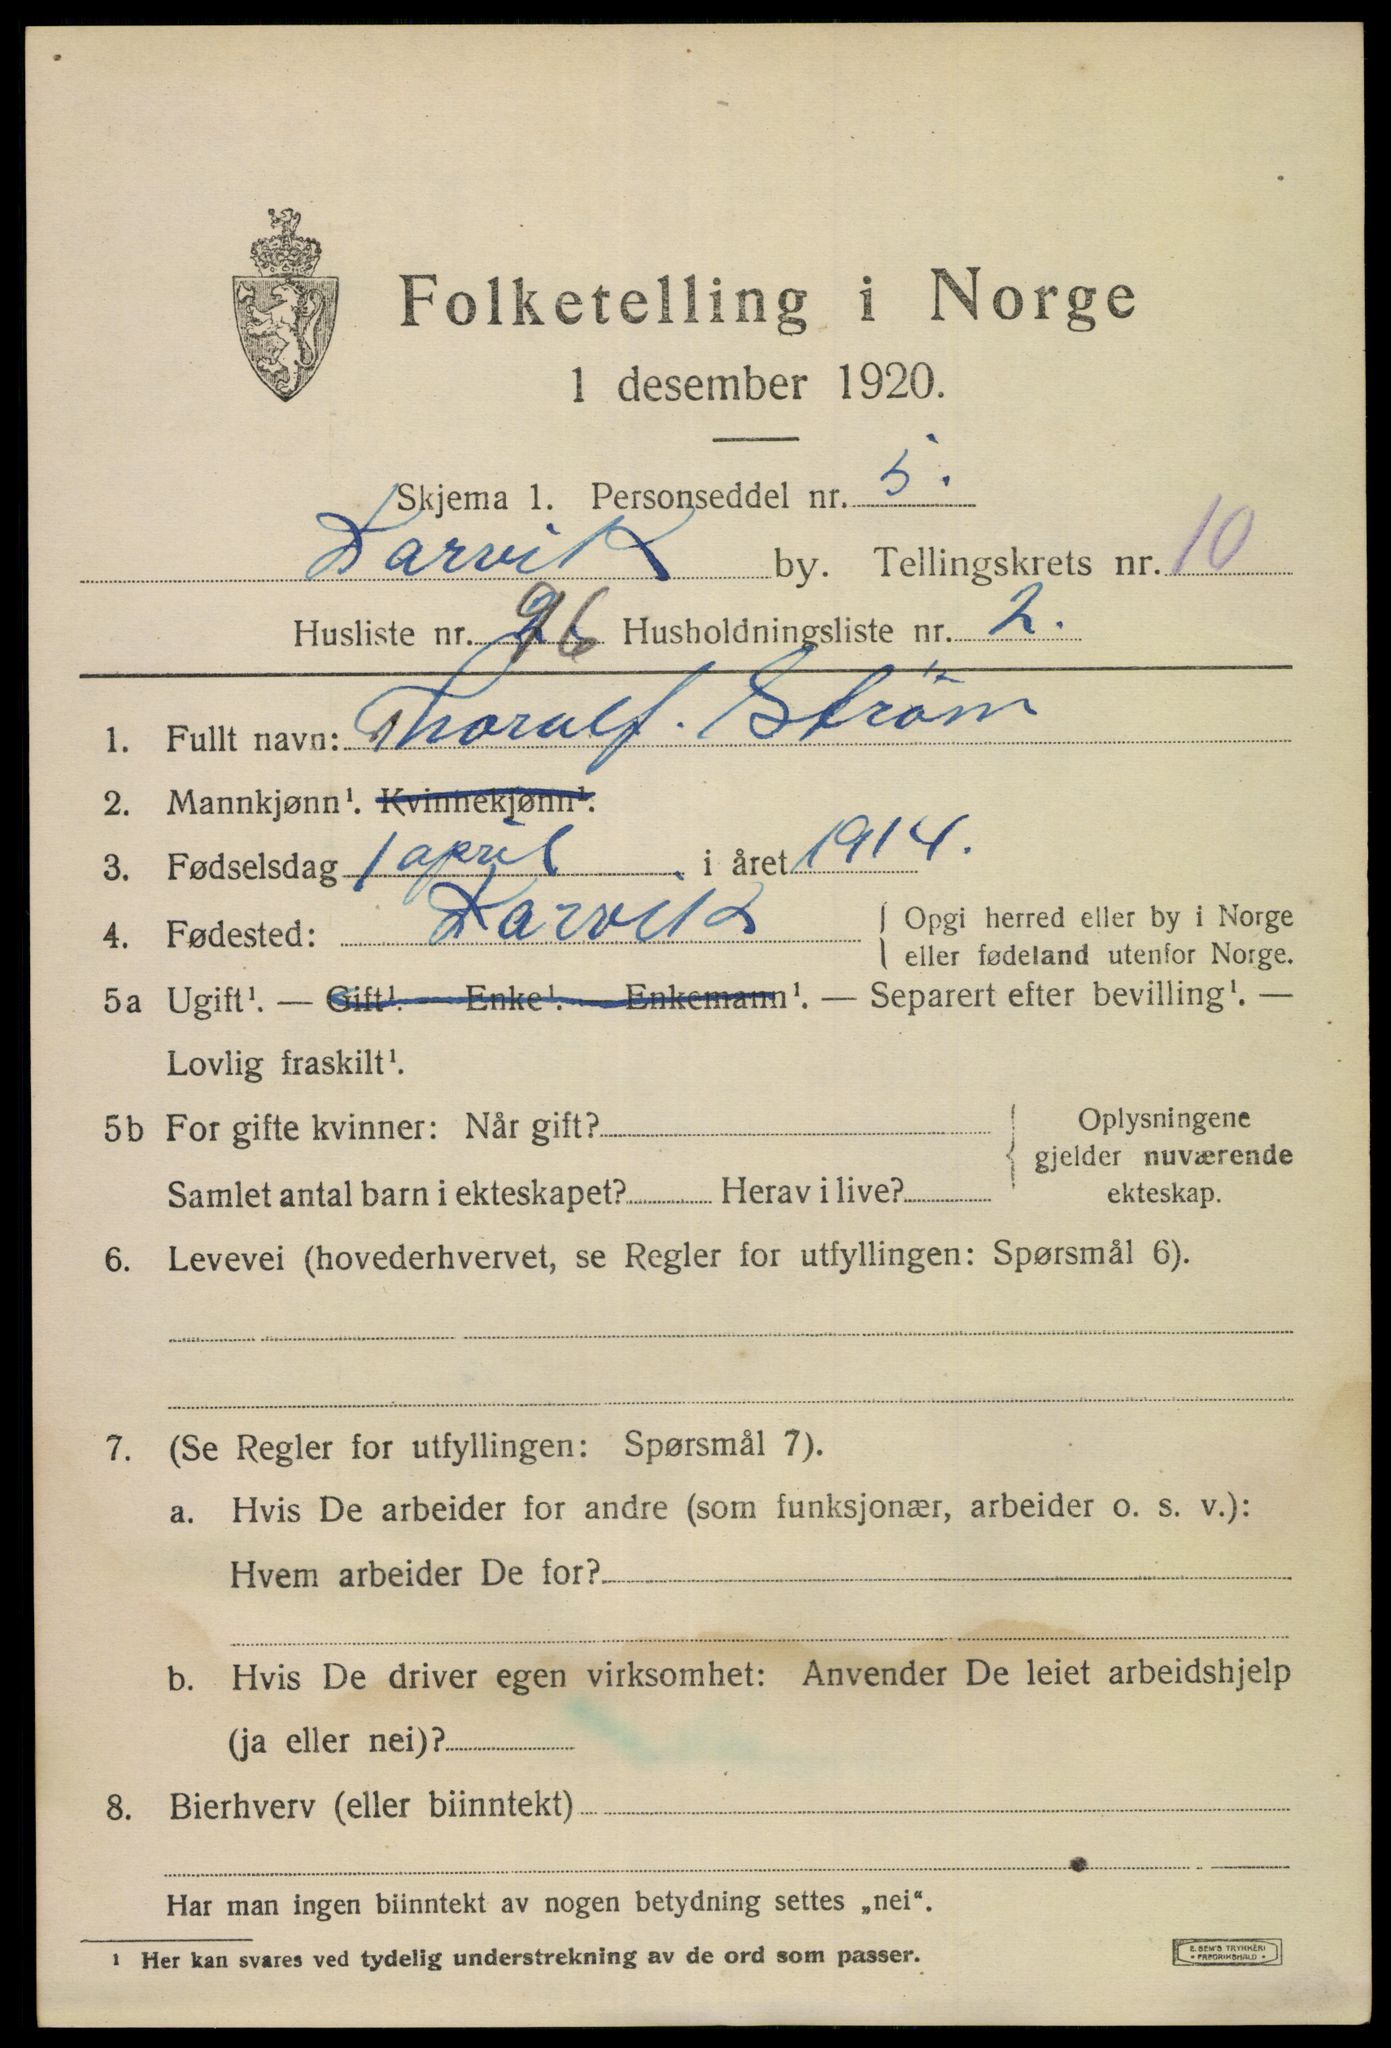 Folketelling i Norge
1 desember 1920.
Skjema 1. Personseddel nr. 5.
Larvik by. Tellingskrets nr. 10
Husliste nr. 96 Husholdningsliste nr. 2.
1. Fullt navn: Thoralf. Strøm
2. Mannkjønn¹. Kvinnekjønn¹.
3. Fødselsdag 1 april i året 1914.
4. Fødested: Larvik { Opgi herred eller by i Norge
eller fødeland utenfor Norge.
5a Ugift¹. — Gift¹. — Enke¹. — Enkemann¹. — Separert efter bevilling¹. —
Lovlig fraskilt¹.
5b For gifte kvinner: Når gift? { Oplysningene
gjelder nuværende
Samlet antal barn i ekteskapet? Herav i live? ekteskap.
6. Levevei (hovederhvervet, se Regler for utfyllingen: Spørsmål 6).
7. (Se Regler for utfyllingen: Spørsmål 7).
a. Hvis De arbeider for andre (som funksjonær, arbeider o. s. v.):
Hvem arbeider De for?
b. Hvis De driver egen virksomhet: Anvender De leiet arbeidshjelp
(ja eller nei)?
8. Bierhverv (eller biinntekt)
Har man ingen biinntekt av nogen betydning settes „nei“.
¹ Her kan svares ved tydelig understrekning av de ord som passer.
E. SEM'S TRYKKERI
• FREDRIKSHALD •